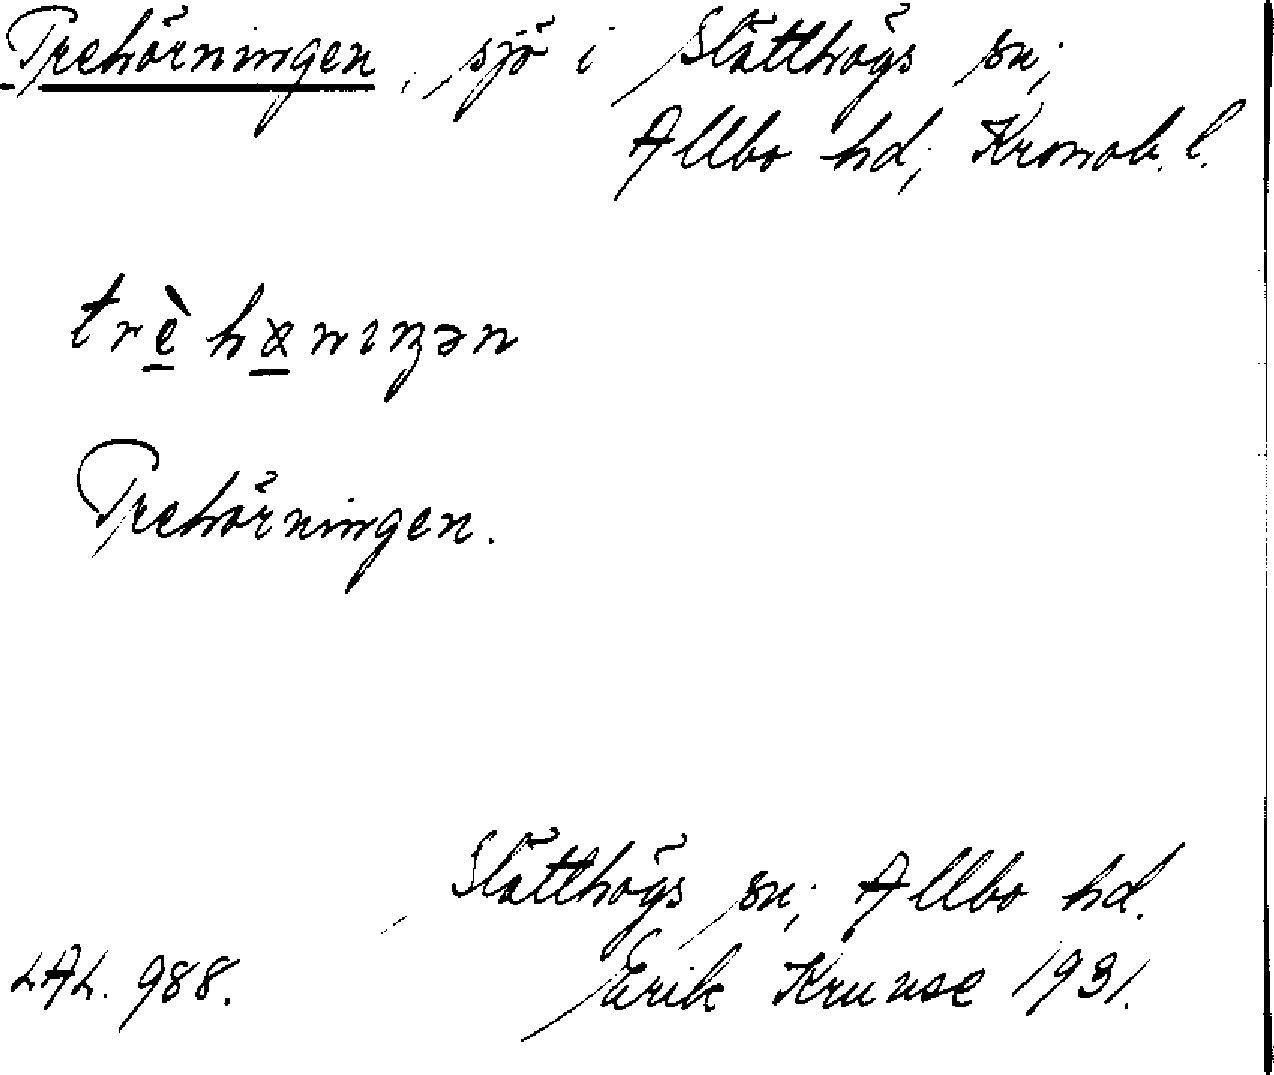 Trehörningen, sjö i Slätthögs sn;
Allbo hd, Kronob. l.
trè̱hα̱nıŋən
Trehörningen.
Slätthögs sn, Allbo hd.
LAL. 988. Erik Kruuse 1931.